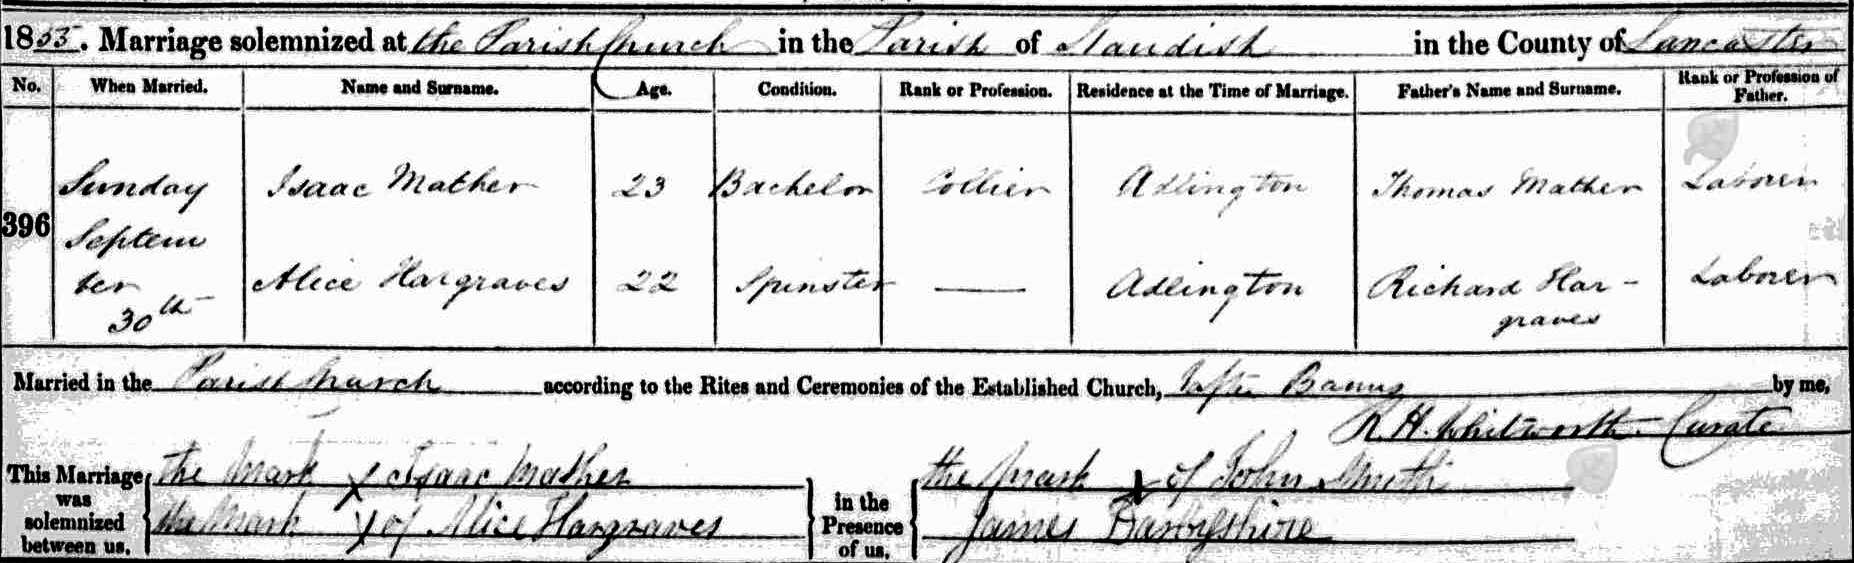 1855. Marriage solemnized at the Parish Church in the Parish of Standish in the County of Lancaster
No. When Married. Name and Surname. Age. Condition. Rank or Profession. Residence at the Time of Marriage. Father's Name and Surname. Rank or Profession of Father.
396 Sunday Septem ber 30th
Isaac Mather 23 Bachelor Collier Adlington Thomas Mather Laborer
Alice Hargraves 22 Spinster — Adlington Richard Har-graves Laborer
Married in the Parish Church according to the Rites and Ceremonies of the Established Church, after Banns by me,
R. H. Whitworth Curate
This Marriage was solemnized between us,
the Mark X Isaac Mather
the Mark X of Alice Hargraves
in the Presence of us,
the Mark X of John Smith
James Darbyshire